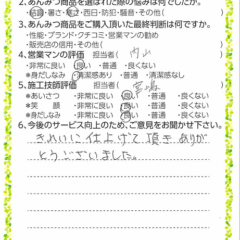 2.あんみつ商品を選ばれた際の悩みは何でしたか。
・結露・暑さ・寒さ・西日・防犯・騒音・その他(　　　)
3.あんみつ商品をご購入頂いた最終判断は何ですか。
・性能・ブランド・クチコミ・営業マンの勧め
・販売店の信用・その他(　　　)
4.営業マンの評価　担当者(　内山　)
・非常に良い・良い・普通・良くない
＊身だしなみ・清潔感あり・普通・清潔感なし
5.施工技師評価　担当者(　　　)
＊あいさつ・非常に良い・良い・普通・良くない
＊笑　顔・非常に良い・良い・普通・良くない
＊身だしなみ・非常に良い・良い・普通・良くない
6.今後のサービス向上のため、ご意見をお聞かせ下さい。
きれいに仕上げて頂きありが
とうございました。